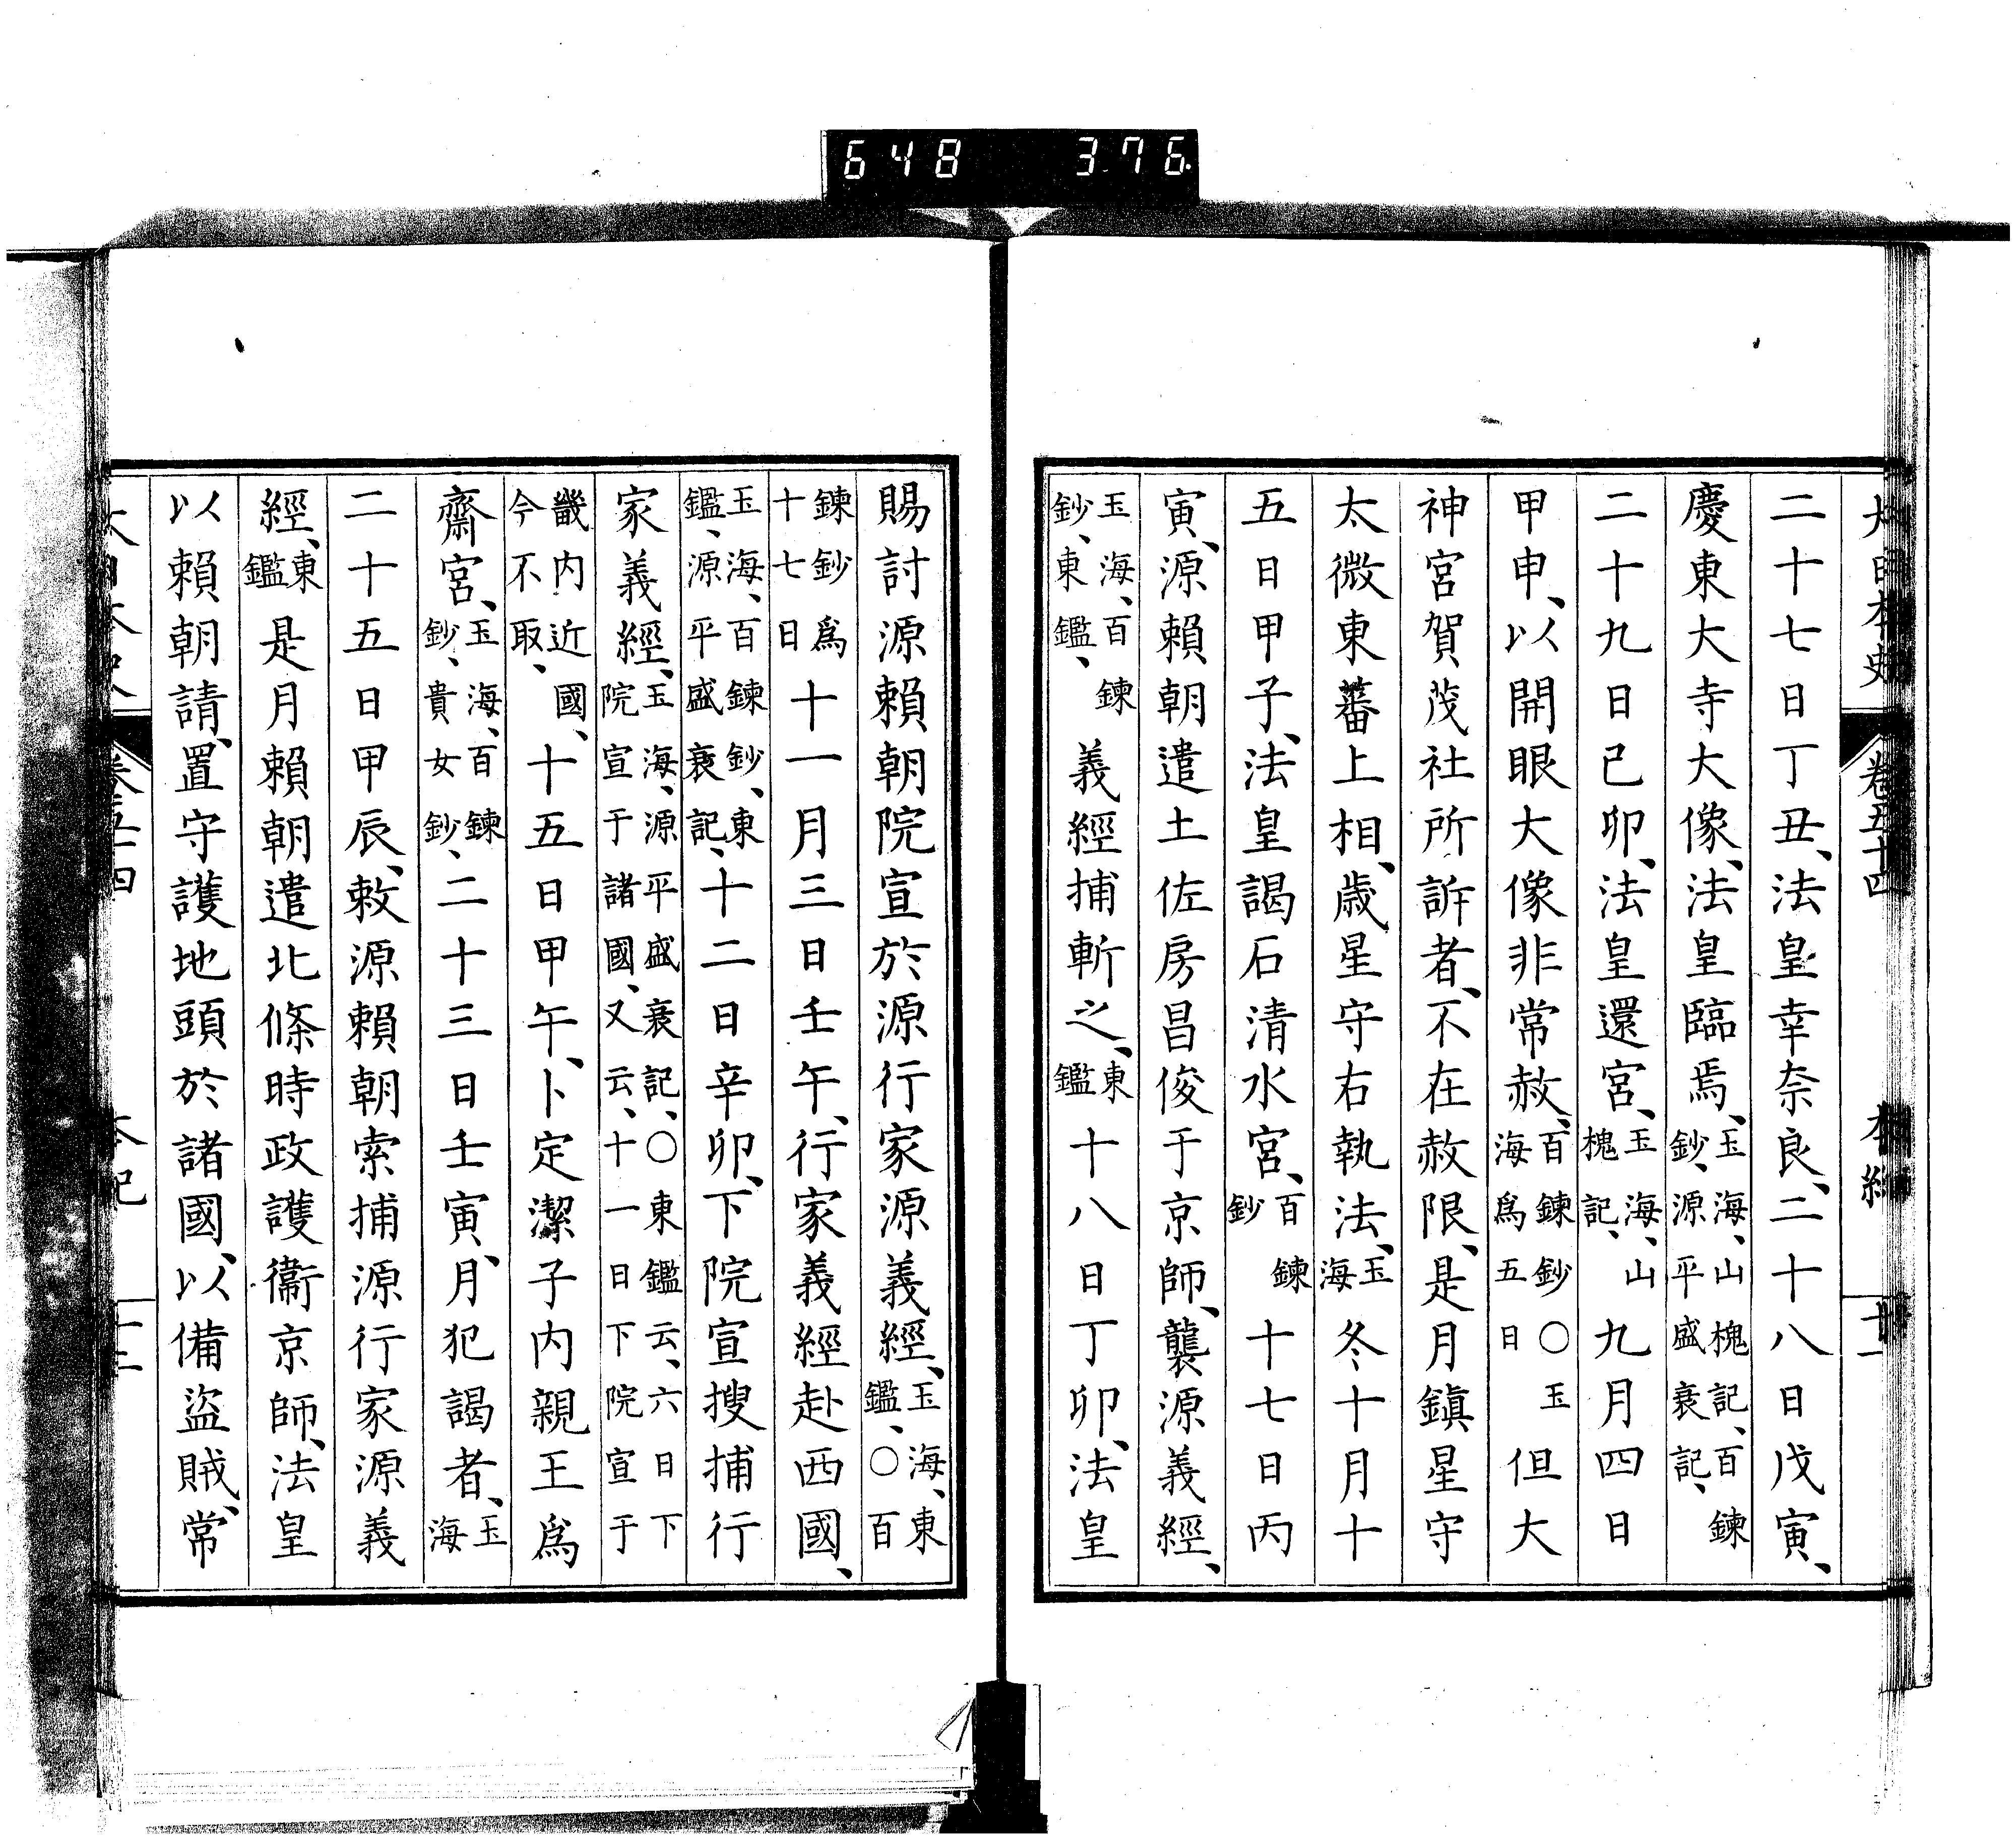 648 376
大日本史 卷五十四 本紀 廿一
二十七日丁丑、法皇幸奈良、二十八日戊寅、
慶東大寺大像、法皇臨焉、玉海、山槐記、百鍊鈔、源平盛衰記、
二十九日己卯、法皇還宮、玉海、山槐記、九月四日
甲申、以開眼大像非常赦、百鍊鈔〇玉海爲五日但大
神宮賀茂社所訴者、不在赦限、是月鎭星守
太微東蕃上相、歲星守右執法、玉海冬十月十
五日甲子、法皇謁石清水宮、百鍊鈔十七日丙
寅、源賴朝遣土佐房昌俊于京師、襲源義經、
玉海、百鍊鈔、東鑑、義經捕斬之、東鑑十八日丁卯、法皇
賜討源賴朝院宣於源行家源義經、玉海、東鑑、〇百
鍊鈔爲十七日十一月三日壬午、行家義經赴西國、
玉海、百鍊鈔、東鑑、源平盛衰記、十二日辛卯、下院宣搜捕行
家義經、玉海、源平盛衰記、〇東鑑云、六日下院宣于諸國、又云、十一日下院宣于
畿内近國、今不取、十五日甲午、卜定潔子内親王爲
齋宮、玉海、百鍊鈔、貴女鈔、二十三日壬寅、月犯謁者、玉海
二十五日甲辰、敕源賴朝索捕源行家源義
經、東鑑是月賴朝遣北條時政護衞京師、法皇
以賴朝請、置守護地頭於諸國、以備盜賊、常